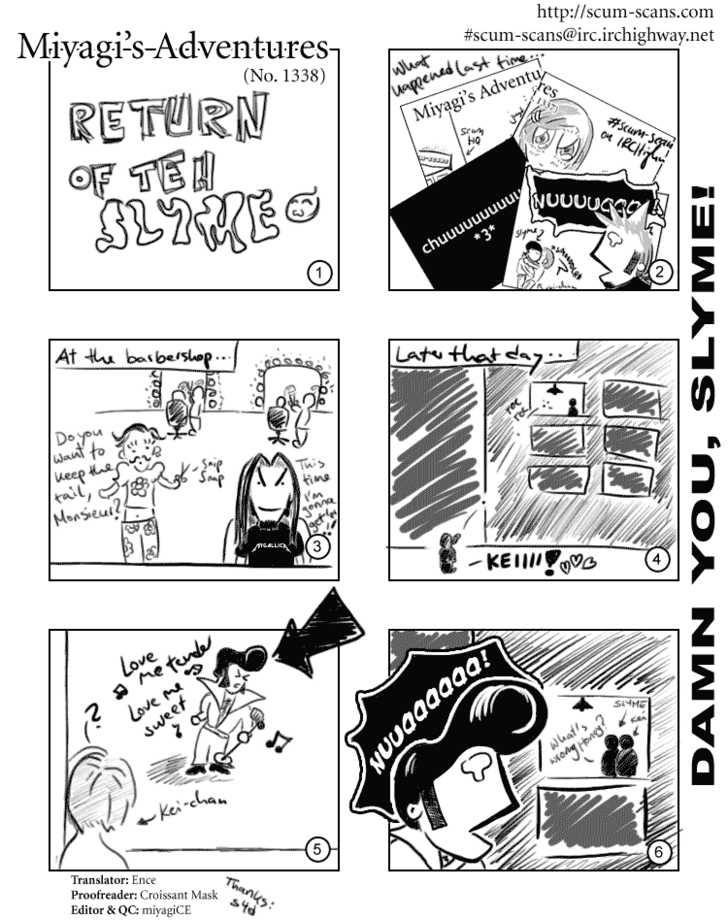 http://scum-scans.com
#scum-scans@irc.irchighway.net
Miyagi's Adventures
(No. 1338)
RETURN
OF TEH
SLYME
1
What
happened last time...
Miyagi's Adventures
SCUM
HQ
#scum-scans
on IRCHighway
chuuuuuuuuuu
*3*
NUUUU
SLYME
2
At the barbershop...
Do you
want to
keep the
tail,
Monsieur?
- Snip
Snap
This
time
I'm
gonna
METALLICA
3
Later that day...
TOC
TOC
- KEIIII! ♡♡♡
4
Love
me tender
Love me
sweet
?
Kei-chan
5
NUUUAAAAAAA!
SLYME
Kei
What's
wrong Honey?
6
DAMN YOU, SLYME!
Translator: Ence
Proofreader: Croissant Mask
Editor & QC: miyagiCE
Thanks: